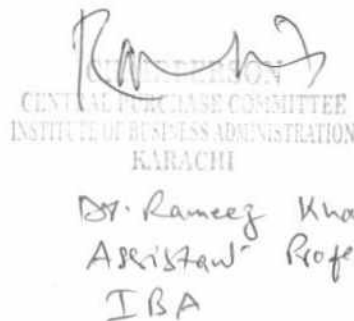 CHAIRPERSON
CENTRAL PURCHASE COMMITTEE
INSTITUTE OF BUSINESS ADMINISTRATION
KARACHI
Dr. Rameez Kha
Assistant Profe
IBA